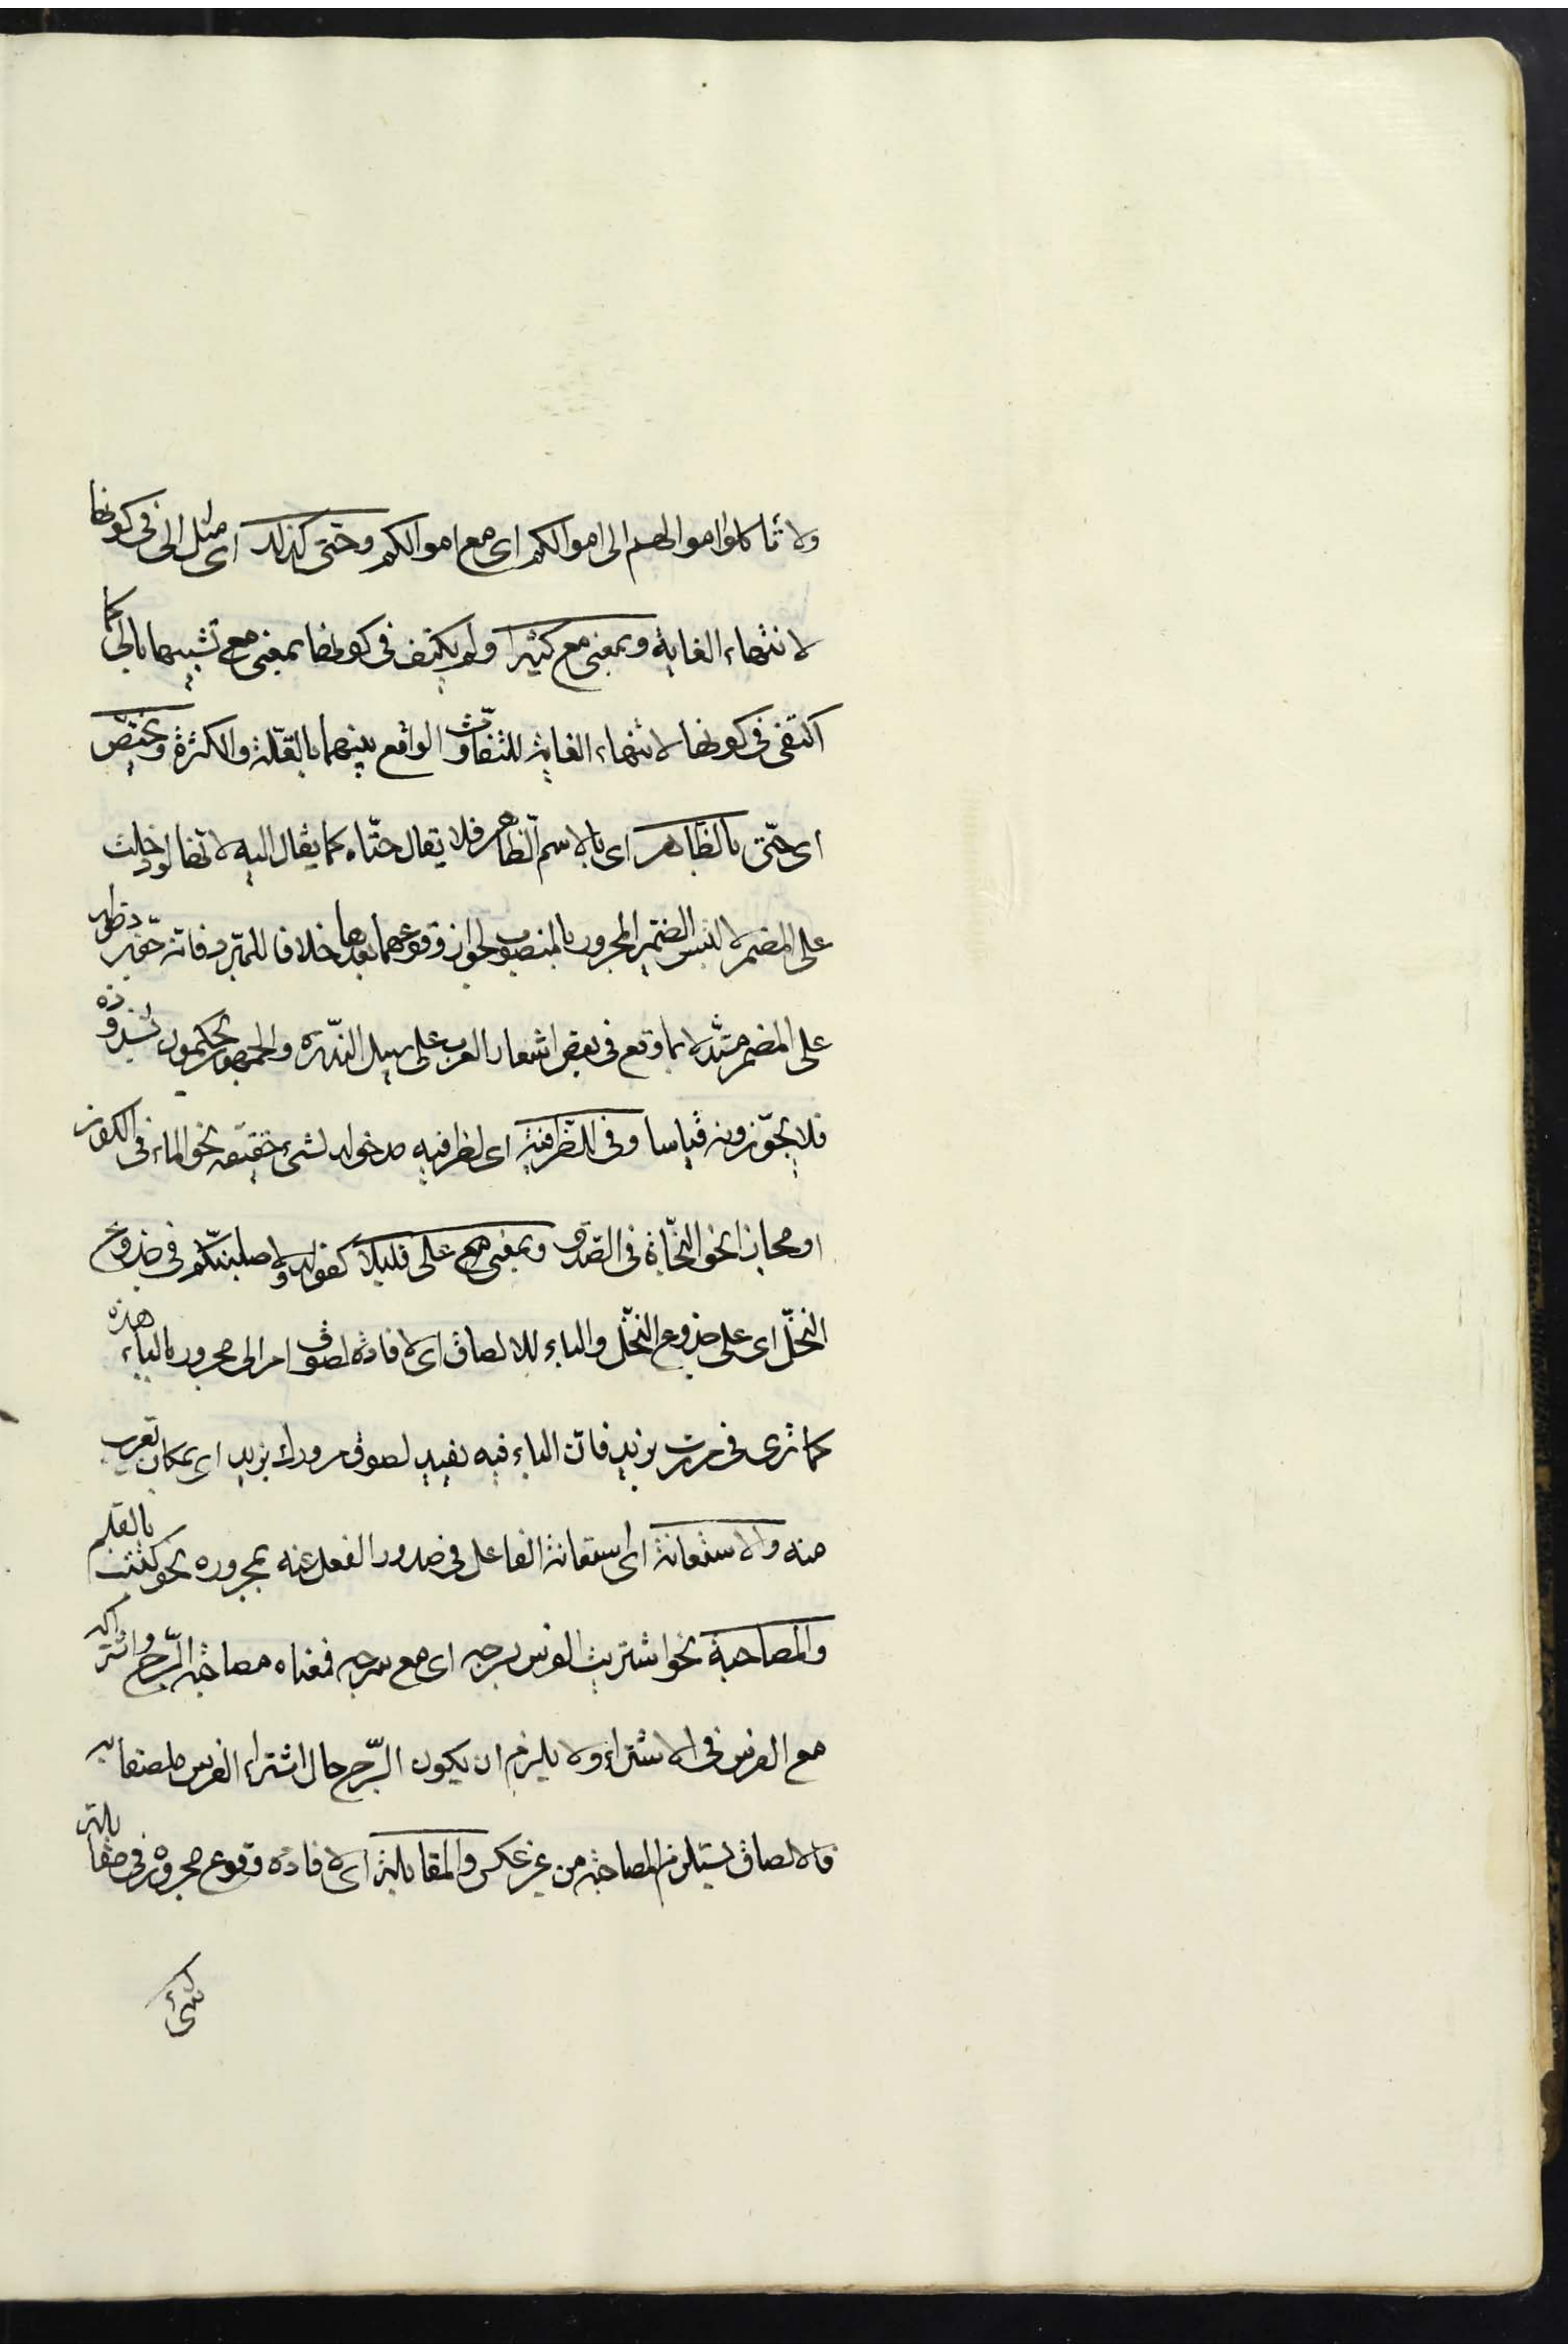 ولا تاكلوا اموالهم الى اموالكم اى مع اموالكم وحتى كذلك اى مثل الى فى كونها
لانتهاء الغاية وبمعنى مع كثيرا ولم يكتف فى كونها بمعنى مع تشبيهها بالى كما
اكتفى فى كونها لانتهاء الغاية للتفاوت الواقع بينهما بالقلة والكثرة ويختص
اى حتى بالظاهر اى بالاسم الظاهر فلا يقال حتاه كما يقال اليه لانها لو دخلت
على المضمر لالتبس الضمير المجرور بالمنصوب لجواز وقوعهما بعدها خلافا للمبرد فانه جوز دخولها
على المضمر مستدلا بما وقع فى بعض اشعار العرب على سبيل الندرة والجمهور يحكمون بشذوذه
فلا يجوزونه قياسا وفى للظرفية اى لظرفيه مدخوله لشئ حقيقة نحو الماء فى الكوز
او مجازا نحو النجاة فى الصدق وبمعنى على قليلا كقوله ولاصلبنكم فى جذوع
النخل اى على جذوع النخل والباء للالصاق اى لافادة لصوق امر الى مجرور الباء هذه
كما ترى فى مررت بزيد فان الباء فيه تفيد لصوق مرورك بزيد اى بمكان تقرب
منه والاستعانة اى استعانة الفاعل فى صدور الفعل عنه بمجروره نحو كتبت بالقلم
والمصاحبة نحو اشتريت الفرس بسرجه اى مع سرجه فمعناه مصاحبة السرج واشتراكه
مع الفرس فى الاشتراء ولا يلزم ان يكون السرج حال اشتراء الفرس ملصقا به
فالالصاق يستلزم المصاحبة من غير عكس والمقابلة اى لافادة وقوع مجروره فى مقابلة
شئ